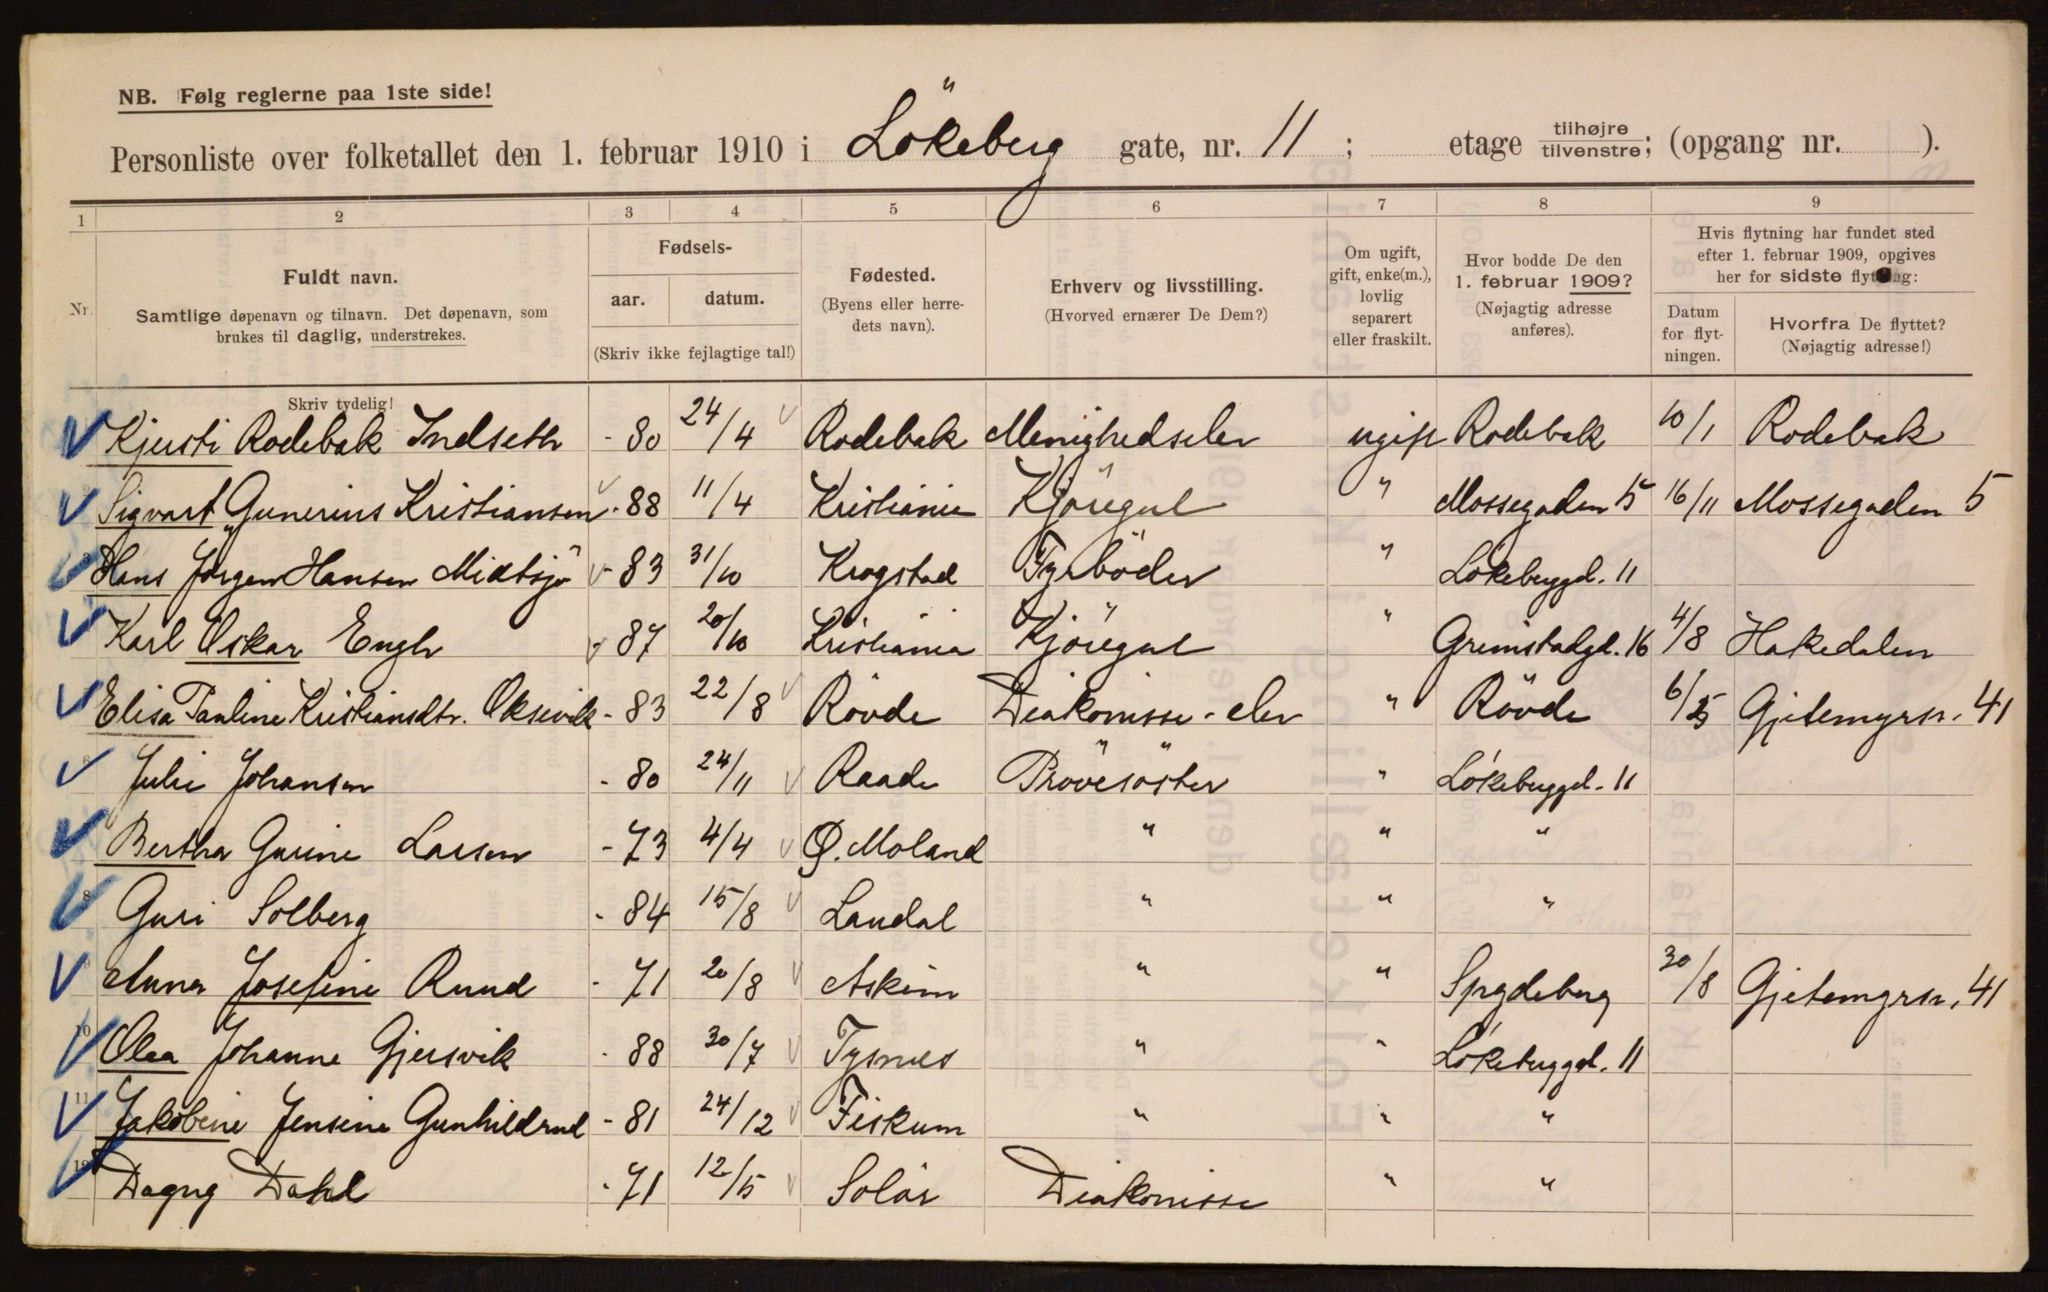 NB. Følg reglerne paa 1ste side!
Personliste over folketallet den 1. februar 1910 i Lökeberg gate, nr. 11 ; etage tilhøjre/tilvenstre; (opgang nr. ).
1 2 3 4 5 6 7 8 9
Nr. Fuldt navn. Samtlige døpenavn og tilnavn. Det døpenavn, som brukes til daglig, understrekes.
Fødsels-
aar. datum.
(Skriv ikke fejlagtige tal!)
Fødested. (Byens eller herredets navn).
Erhverv og livsstilling. (Hvorved ernærer De Dem?)
Om ugift, gift, enke(m.), lovlig separert eller fraskilt.
Hvor bodde De den 1. februar 1909? (Nøjagtig adresse anføres).
Hvis flytning har fundet sted efter 1. februar 1909, opgives her for sidste flytning:
Datum for flytningen.
Hvorfra De flyttet? (Nøjagtig adresse!)
Skriv tydelig!
Kjersti Rodebak Indseth - 80 24/4 Rodebak Menighedselev ugift Rodebak 10/1 Rodebak
Sigvart Gunerius Kristiansen - 88 11/4 Kristiania Kjöregut " Mossegaden 15 16/11 Mossegaden 5
Hans Jörgen Hansen Midtsjö - 83 31/10 Krogstad Fyrböder " Lökeberggd. 11
Karl Oskar Engh - 87 20/10 Kristiania Kjöregut " Grimstadgd. 16 4/8 Hakedalen
Elisa Pauline Kristiansdtr. Oksevik - 83 22/8 Rövde Diakonisse-elev " Rövde 6/25 Gjetemyrsv. 41
Julie Johansen - 80 24/11 Raade Prövesöster " Lökeberggd. 11
Bertha Gurine Larsen - 73 4/4 Ø. Moland " " "
8 Guri Solberg - 84 15/8 Laudal " " "
9 Anna Josefine Ruud - 71 20/8 Askim " " Spydeberg 30/8 Gjetemyrsv. 41
10 Olea Johanne Gjersvik - 88 30/7 Tysnes " " Lökeberggd. 11
11 Jakobine Jensine Gunhildrud - 81 24/12 Fiskum " " "
12 Dagny Dahl - 71 12/5 Solör Diakonisse " "